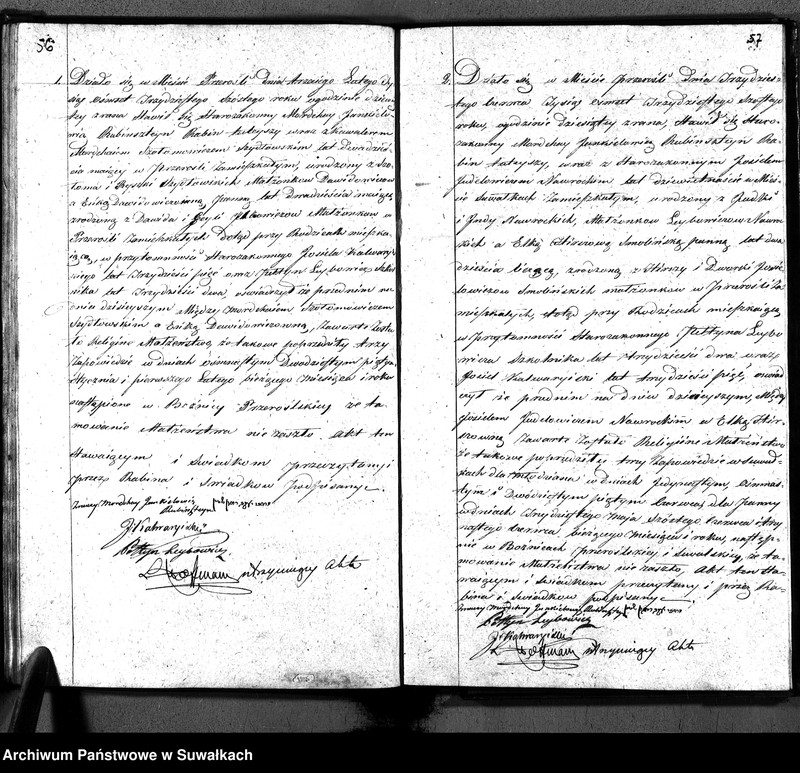 56
1. Działo się w Mieście Przerośli dnia trzeciego Lutego ty-
siąc ośmset trzydziestego szóstego roku o godzinie dziesią-
ty zrana Stawił się Starozakonny Mordchay Jankielo-
wicz Rubinsztyn Rabin tutejszy wraz z Kawalerem
Mordchaiem Szołomowiczem Szydłowskim lat Dwadzieś-
cia maiący w Przerośli Zamieszkałym, urodzony z Szo-
łoma i Ryski Szydłowskich Małżonków
a Eńką Dawidowiczowną Panną lat Dwadzieścia maiącą
zrodzoną z Dawida i Małżonków w
Przerośli Zamieszkałych dotąd przy Rodzicach mieszka-
iącą, w przytomności Starozakonnego Josiela Kalwaryi-
skiego lat trzydzieści pięć oraz Leybowicz Szkol-
nika lat trzydzieści dwa, oświadczył że przed nim na
dniu dzisieyszym Między Mordchaiem Szołomowiczem
Szydłowskim a Eńką Dawidowiczowną, Zawarte Zosta-
ło Religine Małżeństwo, że takowe poprzedziły trzy
Zapowiedzie w dniach ośmnastym Dwudziestym piątym
Stycznia i pierwszego Lutego bieżącego Miesiąca i roku
nastąpione w Bożnicy Przeroslskiey że ta-
mowanie Małżeństwa nie zaszło. Akt ten
Stawaiącym i Swiadkom przeczytany i
przez Rabina i Swiadków Podpisany.
Mordchay Jankielowicz
Rubinsztyn
J Kalwaryiski
Leybowicz
utrzymuiący Akta
57
2. Działo się w Mieście Przerośli dnia Trzydzies-
tego Czerwca Tysiąc ośmset Trzydziestego Szóstego
roku, o godzinie Dziesiąty zrana, Stawił się Staro-
zakonny Mordchay Jankielowicz Rubinsztyn Ra-
bin tutejszy, wraz z Starozakonnym Josielem
Judelowiczem Nawrockim lat dziewiętnaście w Mieś-
cie Suwałkach Zamieszkałym, urodzony z Judki
i Nawrockich, Małżonków Leybowiczow Nawroc-
kich a Elką Hirszową Smolińską panną lat dwa-
dzieścia liczącą, zrodzoną z Hirszy i Dworski Josie-
lowiczów Smolińskich małżonków w Przerośli Za-
mieszkałych, dotąd przy Rodzicach mieszkaiącą
w Przytomności Starozakonnego Leybo-
wicza Szkolnika lat trzydzieści dwa oraz
Josiel Kalwaryiski lat trzydzieści pięć, oświad-
czył że przed nim na dniu dzisieyszym, Między
Josielem Judelowiczem Nawrockim a Elką Hir-
szowną Zawarte Zostało Religine Małżeństwo
że takowe poprzedziły trzy Zapowiedzie w Suwał-
kach dla Młodziana w dniach Jedynastym, ośmnas-
tym i Dwudziestym piątym Czerwca, dla Panny
w dniach Trzydziestego Maja Szóstego Czerwca i trzy-
nastego Czerwca bieżącego Miesiąca i roku, nastąpio-
nie w Bożnicach przeroslskiey i Suwalskiey, że ta-
mowanie Małżeństwa nie zaszło, Akt ten Sta-
waiącym i Swiadkom przeczytany i przez Ra-
bina i Swiadków podpisany.
Mordchay Jankielowicz Rubinsztyn
Leybowicz
J Kalwaryiski
utrzymuiący Akta
Archiwum Państwowe w Suwałkach